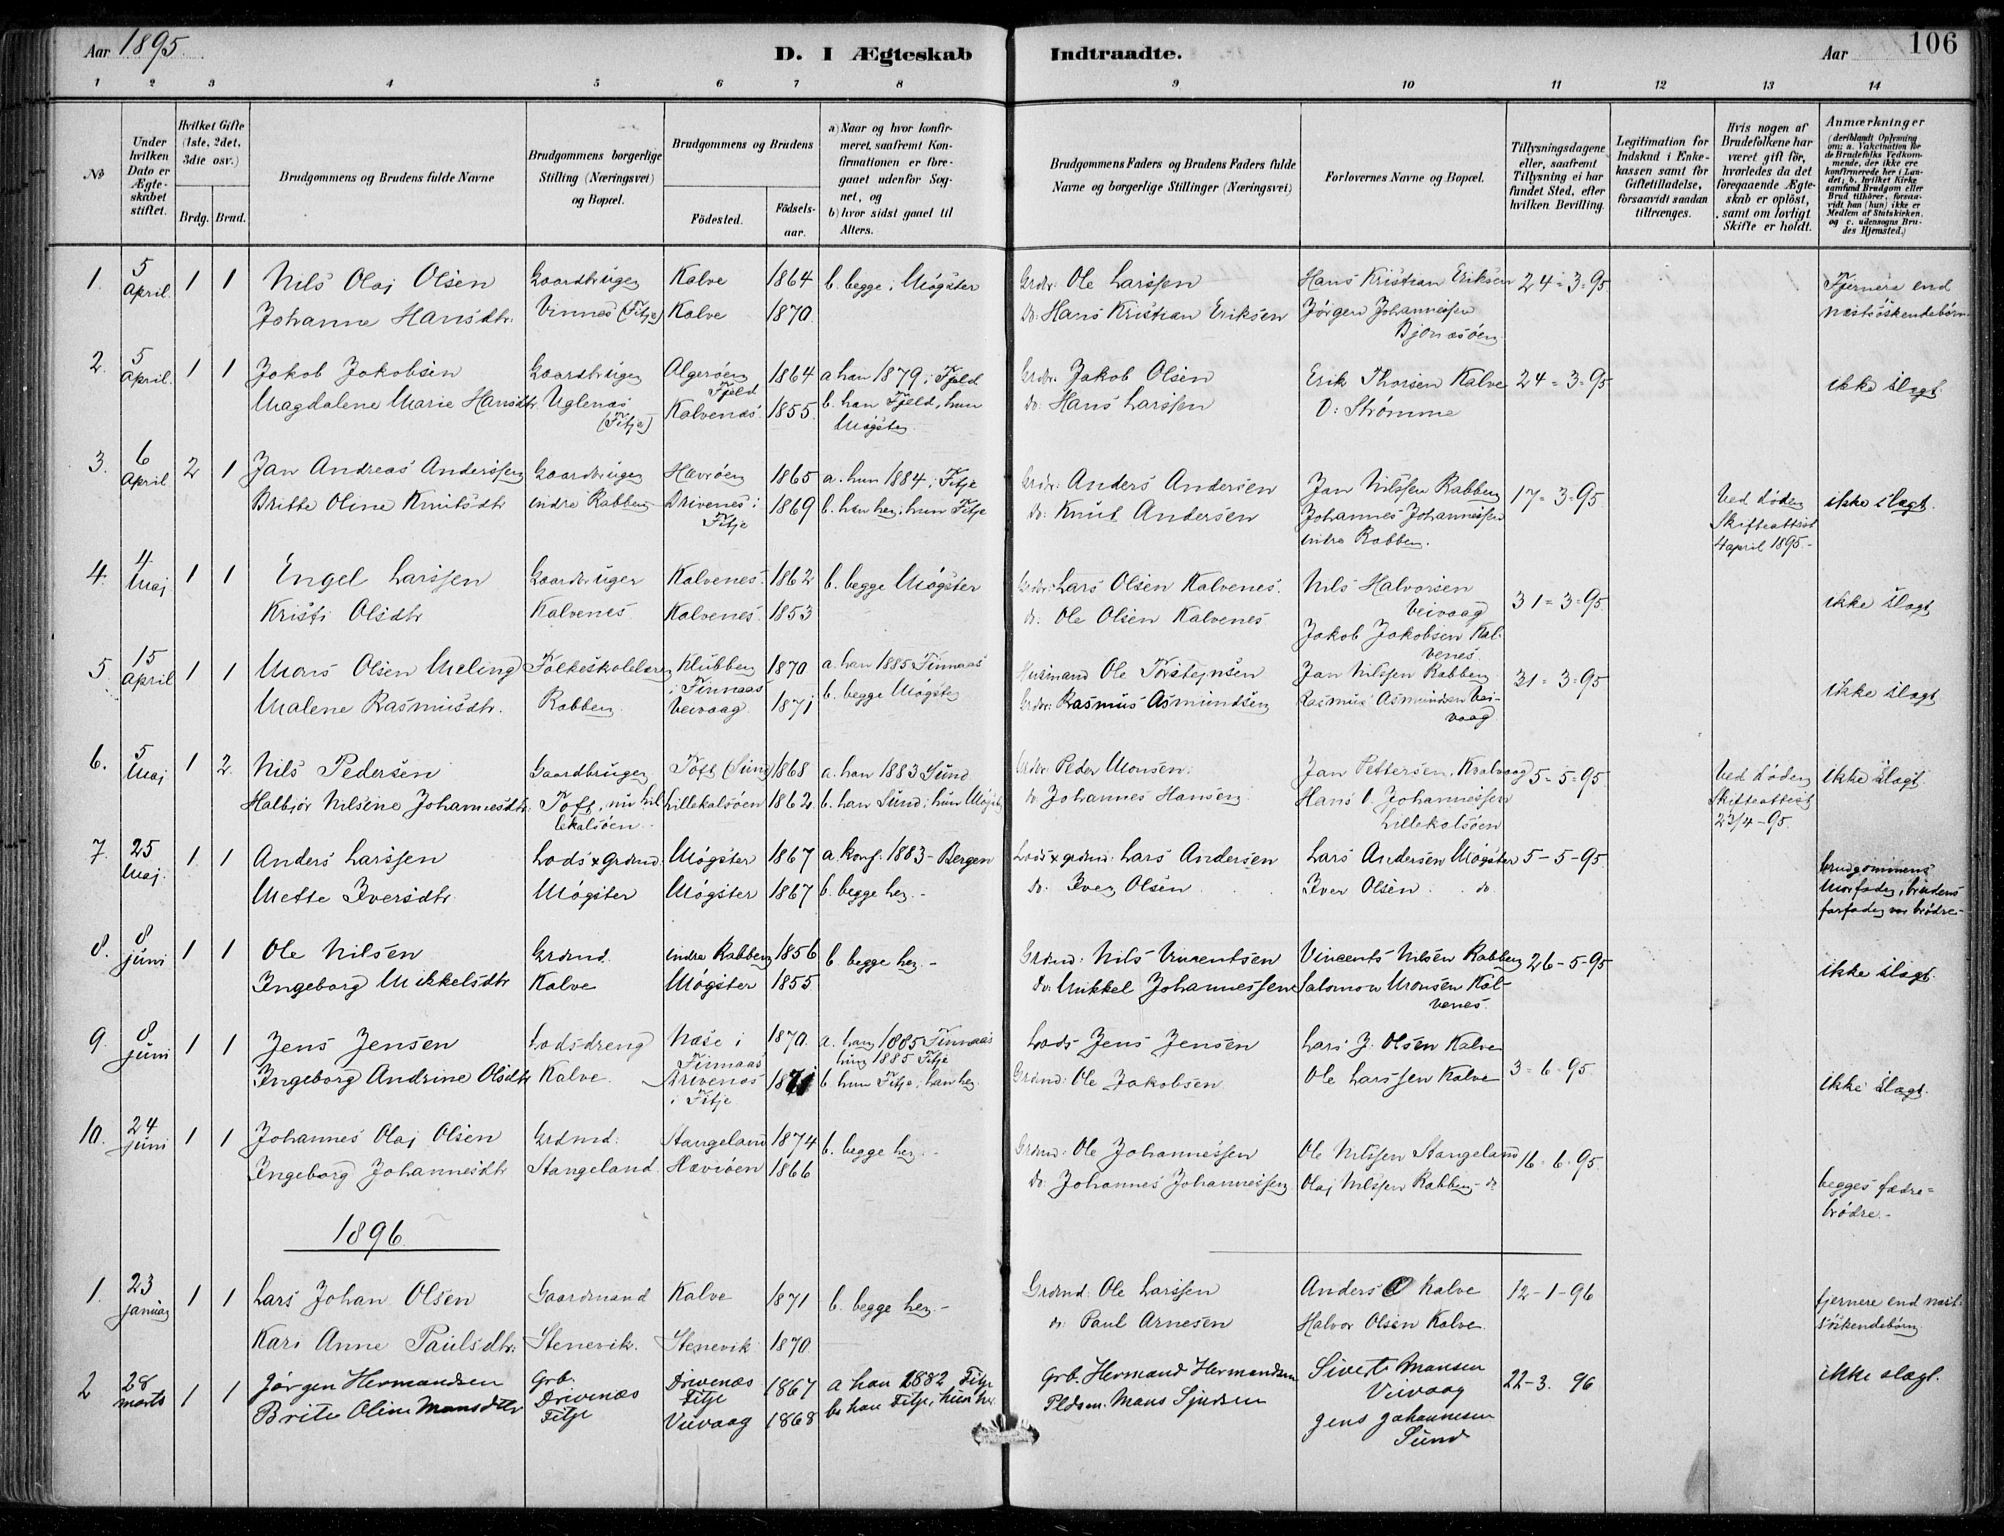 Aar 1895.
D. I Ægteskab Indtraadte.
Aar
106
1 2 3 4 5 6 7 8 9 10 11 12 13 14
No
Under hvilken Dato er Ægteskabet stiftet.
Hvilket Gifte (1ste, 2det, 3die osv.)
Brdg. Brud.
Brudgommens og Brudens fulde Navne
Brudgommens borgerlige Stilling (Næringsvei) og Bopæl.
Brudgommens og Brudens
Fødested.
Fødselsaar.
a) Naar og hvor konfirmeret, saafremt Konfirmationen er foregaaet udenfor Sognet, og
b) hvor sidst gaaet til Alters.
Brudgommens Faders og Brudens Faders fulde Navne og borgerlige Stillinger (Næringsvei)
Forlovernes Navne og Bopæl.
Tillysningsdagene eller, saafremt Tillysning ei har fundet Sted, efter hvilken Bevilling.
Legitimation for Indskud i Enkekassen samt for Giftetilladelse, forsaavidt saadan tiltrænges.
Hvis nogen af Brudefolkene har været gift før, hvorledes da det foregaaende Ægteskab er opløst, samt om lovligt Skifte er holdt.
Anmærkninger
(deriblandt Oplysning om: a. Vaksination for de Brudefolks Vedkommende, der ikke ere konfirmerede her i Landet; b. hvilket Kirkesamfund Brudgom eller Brud tilhører, forsaavidt han (hun) ikke er Medlem af Statskirken, og c. udensogns Brudes Hjemsted.)
1. 5 April. 1 1 Nils Olaj Olsen Gaardbruger Kalve 1864 b. begge i Møgster Grdbr. Ole Larssen Hans Kristian Eriksen 24=3=95 Fjernere end
Johanne Hansdtr. Vinnes (Fitje) Kalve 1870. do: Hans Kristian Eriksen Jørgen Johannessen næstsöskendebörn
Bjonesøen
2. 5 April. 1 1 Jakob Jakobsen Gaardbruger Algerøen Fjeld 1864 a han 1879 i Fjeld Grdbr. Jakob Olsen Erik Thorsen Kalve 24=3=95 ikke slagt.
Magdalene Marie Hansdtr Uglenæs (Fitje) Kalvenæs 1855. b. han Fjeld, hun Møgster do: Hans Larssen O: Strømme
3. 6 April 2 1 Jan Andreas Anderssen Gaardbruger Havrøen 1865 a. hun 1884 i Fitje Grdbr. Anders Andersen Jan Nilssen Rabben 17=3=95 Ved Døden ikke slagt.
Britte Oline Knutsdtr indre Rabben Drivenes i Fitje 1869 b. han her, hun Fitje do: Knut Andersen Johannes Johannessen indre Rabben. Skifteattest 4 april 1895.-
4. 4 Maj 1 1 Engel Larssen Gaardbruger Kalvenes. 1862 b. begge Møgster Grdbr: Lars Olsen Kalvenes. Nils Halvorsen Veivaag 31=3=95 ikke slagt
Kristi Olsdtr Kalvenes Kalvenes. 1853 do. Ole Olsen Kalvenes Jakob Jakobsen Kalvenes.
5. 15 April 1 1 Mons Olsen Meling Folkeskolelærer Klubben i Finnaas 1870 a. han 1885 Finnaas Husmand Ole Torstejnsen Jan Nilssen Rabben 31=3=95 ikke slagt
Malene Rasmusdtr. Rabben. Veivaag 1871 b. begge Møgster Grdbr: Rasmus Asmundsen Rasmus Asmundsen Veivaag
6. 5 Maj 1 2. Nils Pedersen Gaardbruger Toft (Sund) 1868 a. han 1883 Sund. Grdbr. Peder Monsen. Jan Pettersen, Kvalvaag 5-5-95 Ved Døden ikke slagt
Halbjør Nilsine Johannesdtr. Toft, nu Lillekalsøen. Lillekalsøen 1862 b. han Sund, hun Møgster do Johannes Hansen Hans O. Johannessen Lillekalsøen Skifteattest 23/4-95.
7. 25 Maj. 1 1 Anders Larssen Lods & grdmd. Møgster 1867 a. konf. 1883- Bergen Lods & grdmd. Lars Andersen Lars Andersen Møgster 5-5-95 brudgommens
Mette Iversdtr. Møgster Møgster 1867 b. begge her.- do. Iver Olsen Iver Olsen do. Morfader, brudens farfader var brödre.-
8. 8 Juni 1 1 Ole Nilsen Grdmd. indre Rabben 1856 b. begge her.- Grdmd: Nils Vincentsen Vincents Nilsen Rabben 26-5-95 ikke slagt.
Ingeborg Mikkelsdtr Kalve Møgster 1855 do: Mikkel Johannessen Salomon Monsen Kalvenes.
9. 8 Juni 1 1 Jens Jensen Lodsdreng Næse i Finnaas 1870. a. han 1885 Finnaas hun 1885 Fitje Lods Jens Jensen Lars J. Olsen Kalve 3-6-95 ikke slagt.
Ingeborg Andrine Olsdtr Kalve. Drivenes i Fitje 1871 b. hun Fitje, han her Grdmd: Ole Jakobsen Ole Larssen Kalve
10. 24 Juni 1 1 Johannes Olaj Olsen Grdmd: Stangeland 1874 b. begge her.- Grdmd: Ole Johannessen Ole Nilssen Stangeland 16-6-95. begges fædre=
Ingeborg Johannesdtr Stangeland. Havrøen 1866 do: Johannes Johannessen Olaj Nilssen Rabben - do brödre.-
1896.
1. 23 januar 1 1 Lars Johan Olsen Gaardmand Kalve 1871 b. begge her.- Grdmd: Ole Larssen Anders O Kalve 12-1-96 fjernere end næst-
Kari Anne Paulsdtr. Stenevik. Stenevik 1870. do: Paul Arnesen Halvor Olsen Kalve. söskendebörn
2 28 marts 1 1 Jørgen Hermandsen Grb. Drivenæs Fitje Drivenæs Fitje 1867 a han 1882 Fitje Grb. Hermand Hermandsen Sivert Mansen Veivaag 22-3. 96 ikke slagt.
Brite Oline Mansdtr Veivaag 1868 b: han Fitje, hun her Pldsm. Mans Sjursen Jens Johannesen Sund